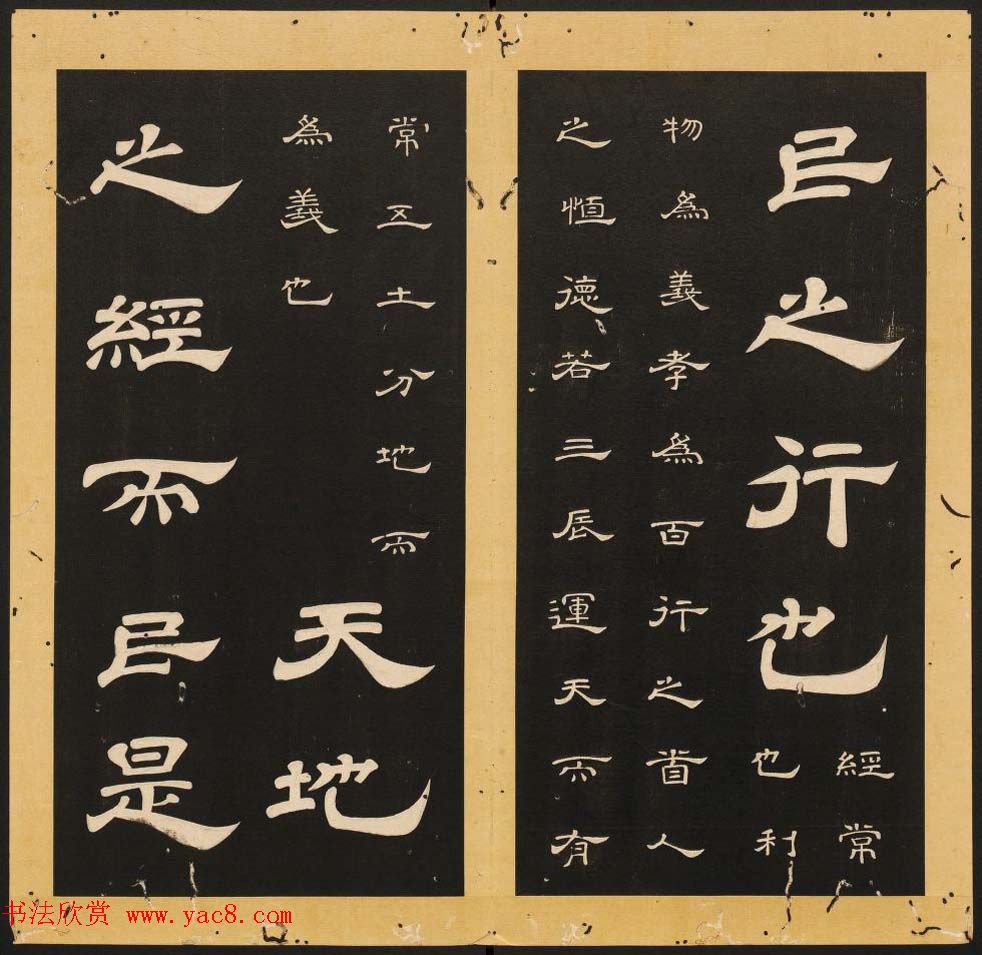 民之行也
經常
也利
物爲義孝爲百行之首人
之恒德若三辰運天而有
常五土分地而
爲義也
天地
之經而民是
书法欣赏 www.yac8.com